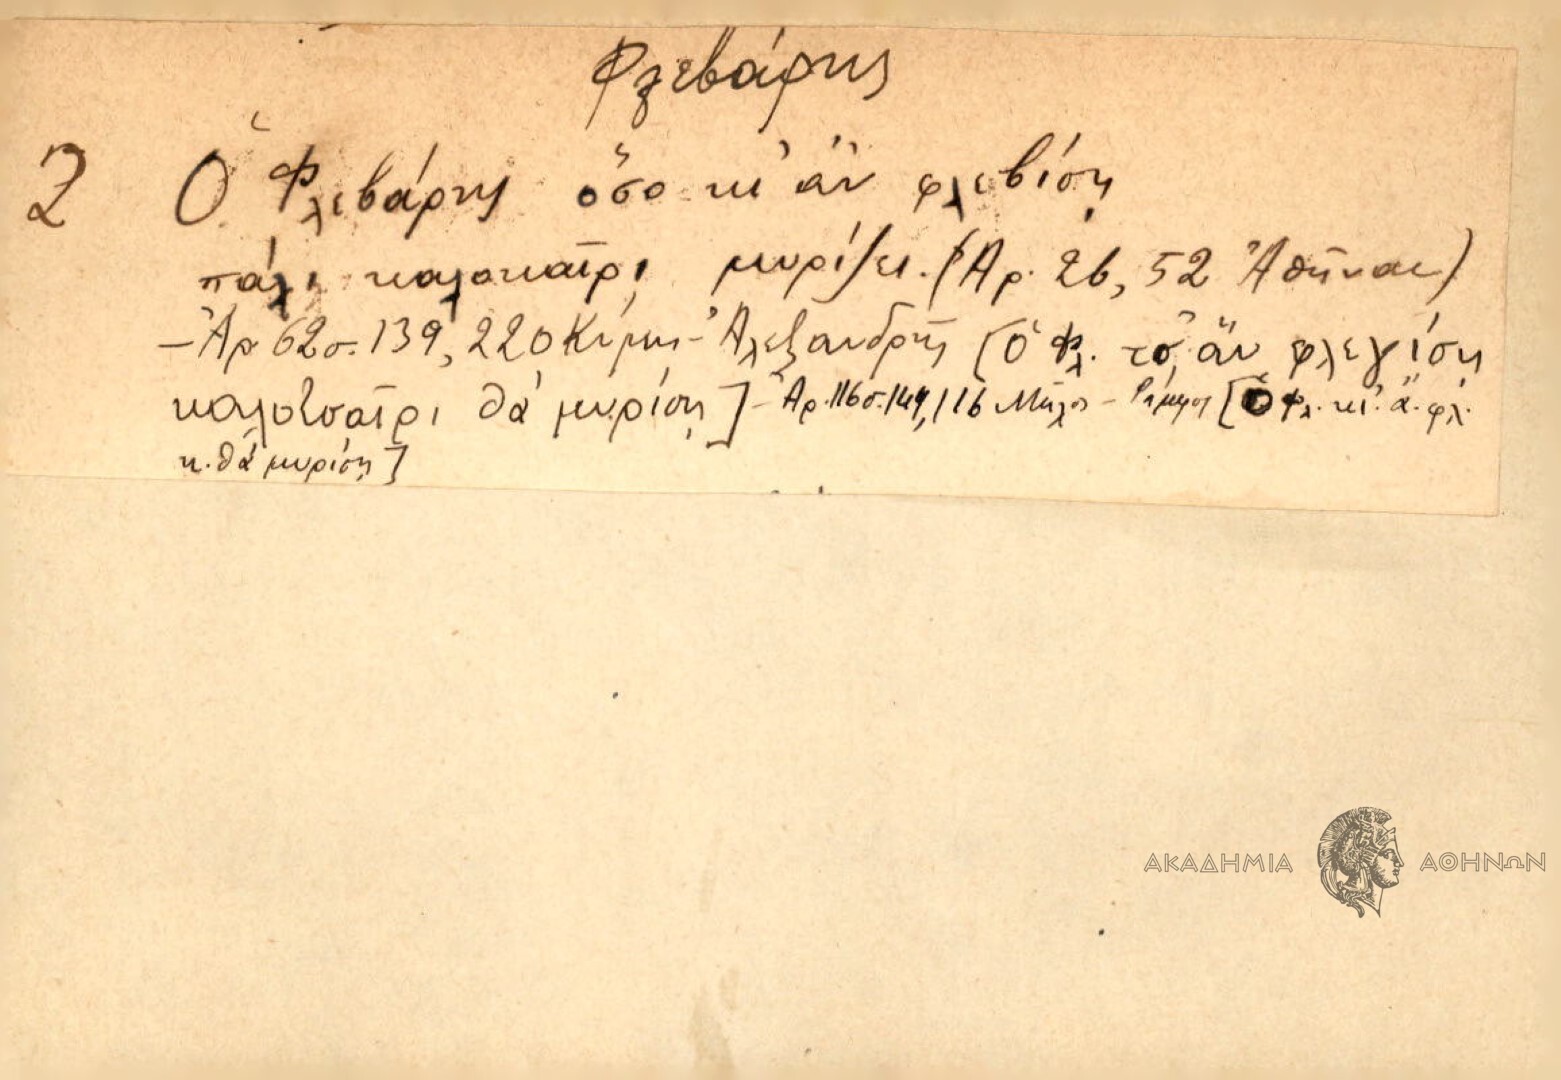 Φλεβάρης
2 Ὁ Φλεβάρης ὅσο κι' ἂν φλεβίση
πάλι καλοκαῖρι μυρίζει. (Ἀρ. 26, 52 Ἀθῆναι)
– Ἀρ. 62 σ. 139, 220 Κύμης – Ἀλεξανδρῆς [Ὁ Φλ. τσ' ἂν φλεγίση
καλοτσαῖρι θὰ μυρίση] – Ἀρ. 116 σ. 149, 116 Μῆλος – [Ὁ Φλ. κι' ἂ. φλ.
κ. θὰ μυρίση]
ΑΚΑΔΗΜΙΑ ΑΘΗΝΩΝ